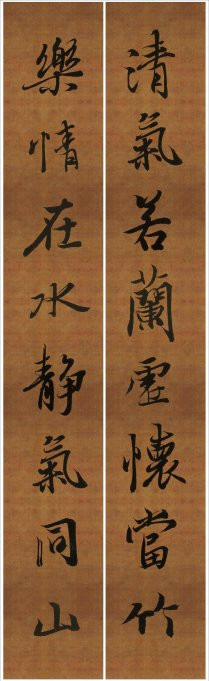 清氣若蘭虛懷當竹
樂情在水静氣同山